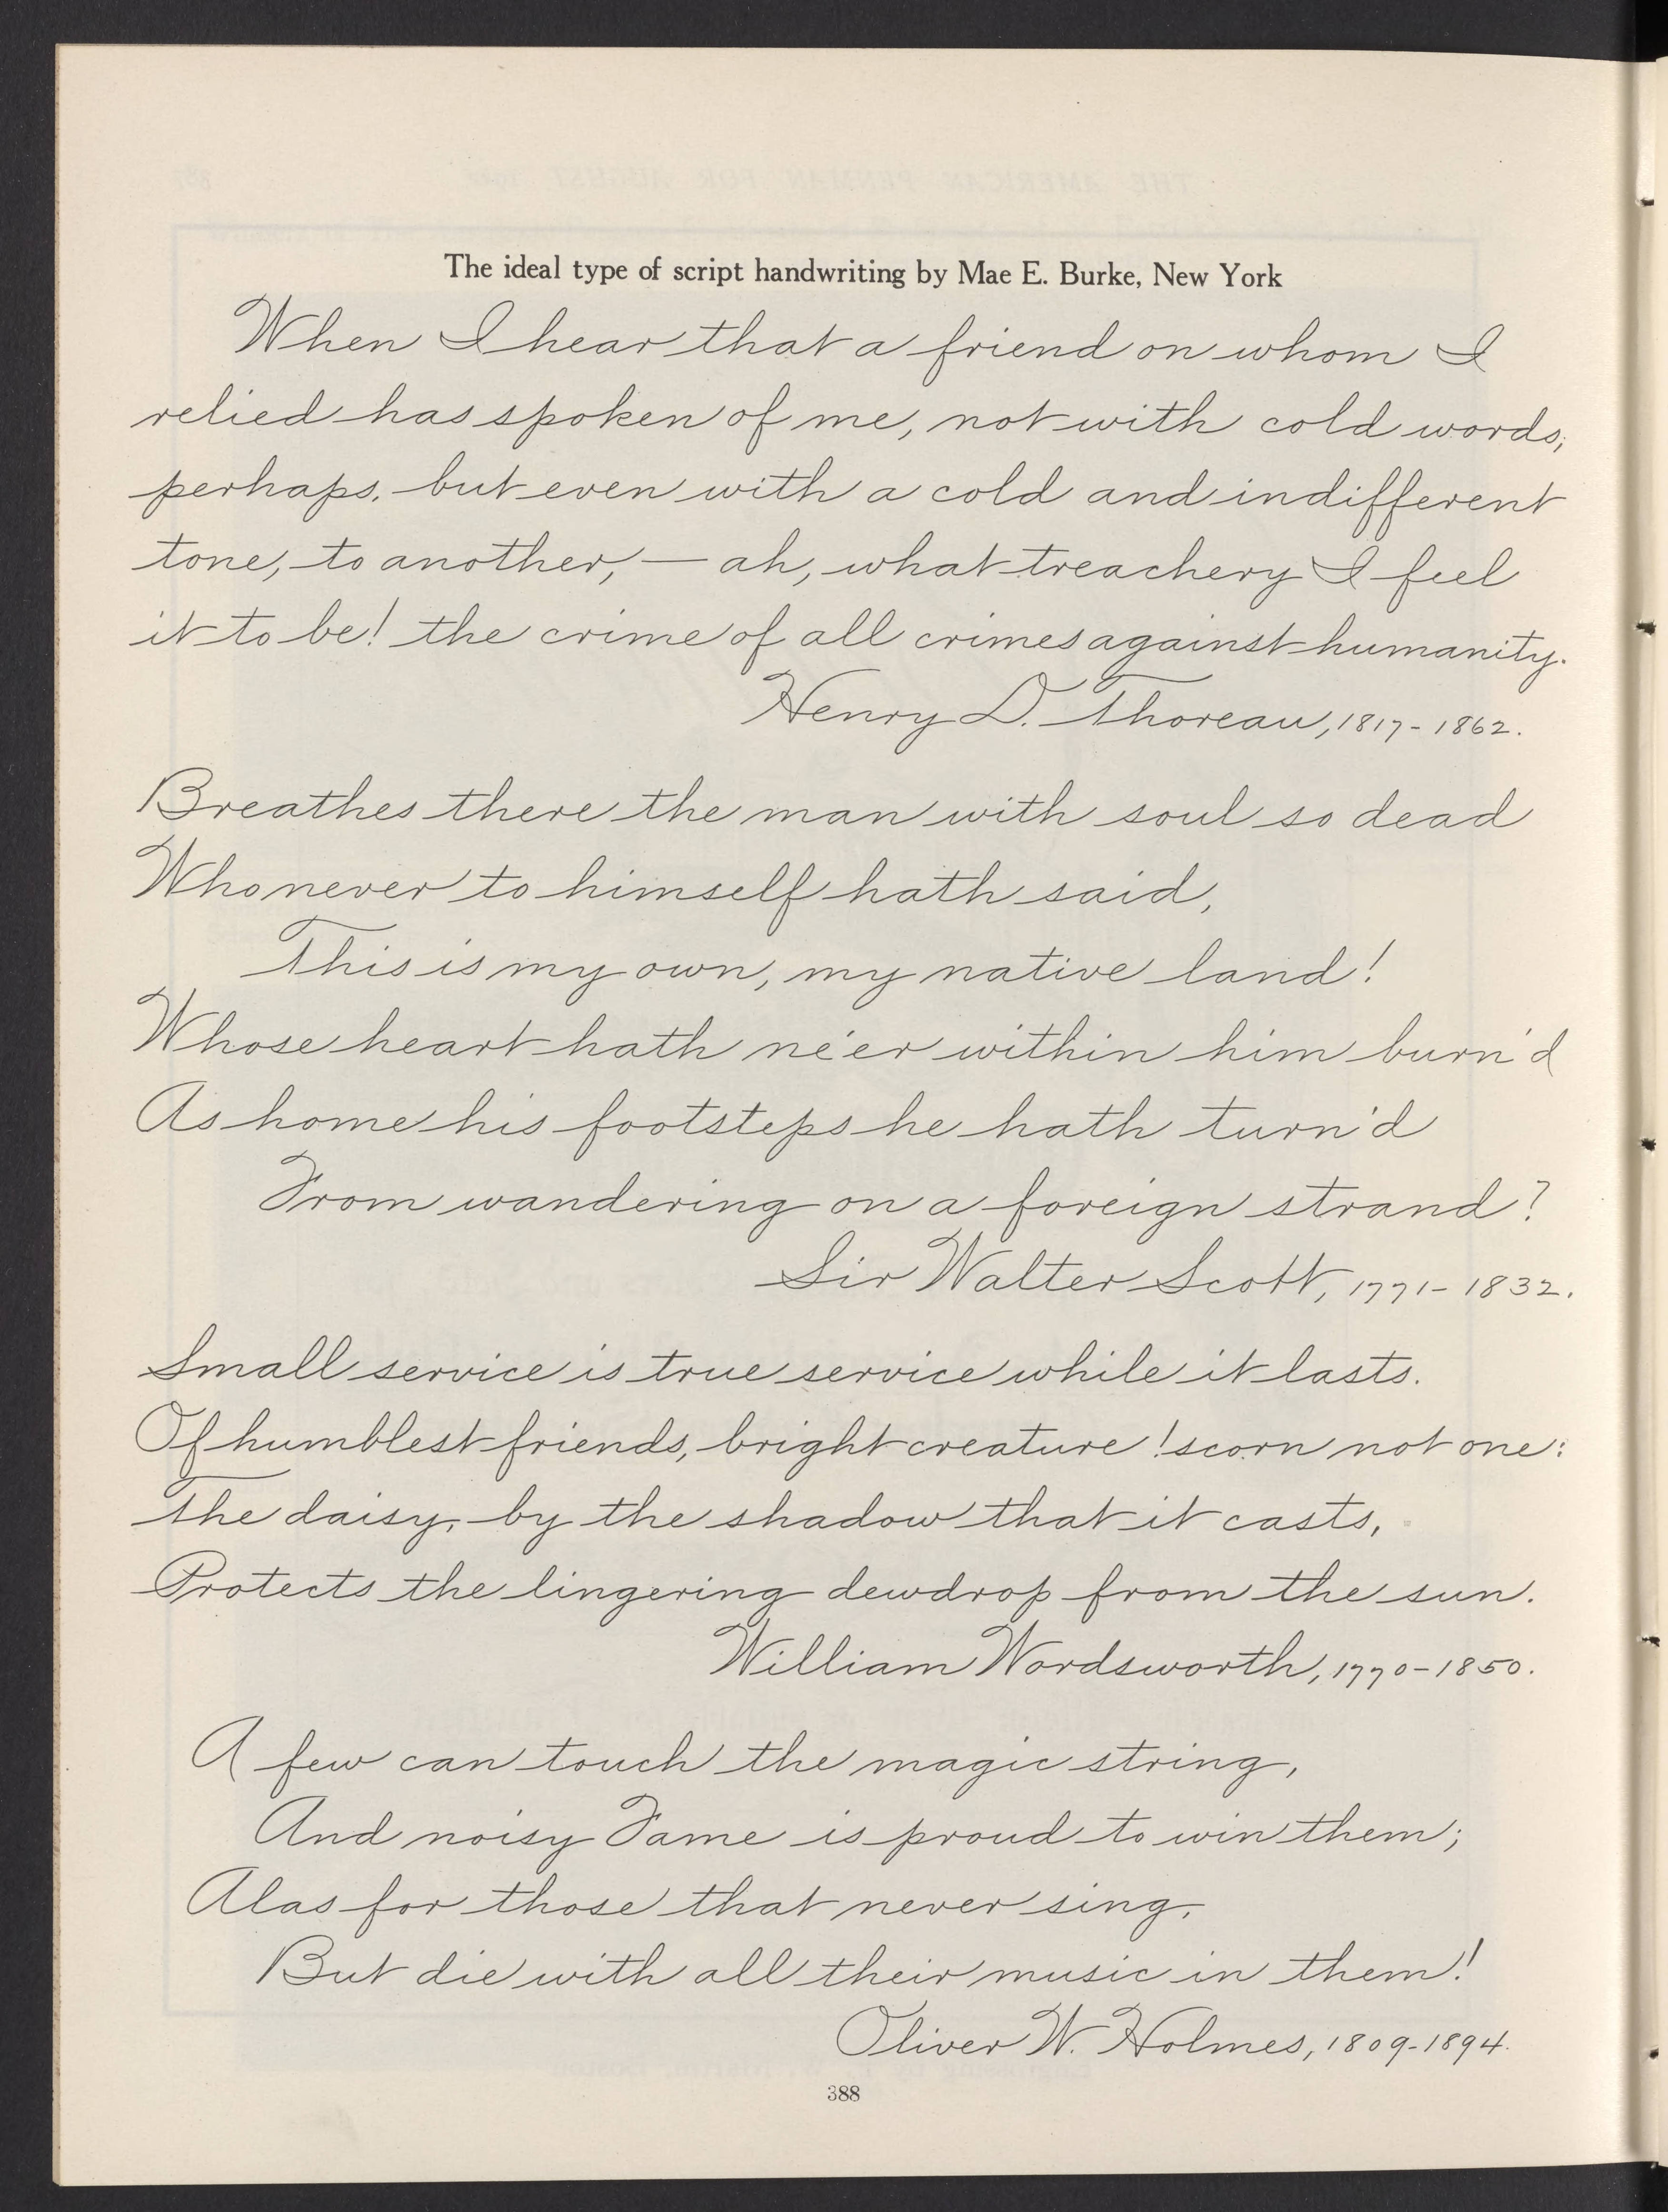 The ideal type of script handwriting by Mae E. Burke, New York
When I hear that a friend on whom I
relied has spoken of me, not with cold words,
perhaps, but even with a cold and indifferent
tone, to another, — ah, what treachery I feel
it to be! the crime of all crimes against humanity.
Henry D. Thoreau, 1817-1862.
Breathes there the man with soul so dead
Who never to himself hath said,
This is my own, my native land!
Whose heart hath ne'er within him burn'd
As home his footsteps he hath turn'd
From wandering on a foreign strand?
Sir Walter Scott, 1771-1832.
Small service is true service while it lasts.
Of humblest friends, bright creature! scorn not one:
The daisy, by the shadow that it casts,
Protects the lingering dewdrop from the sun.
William Wordsworth, 1770-1850.
A few can touch the magic string,
And noisy Fame is proud to win them;
Alas for those that never sing,
But die with all their music in them!
Oliver W. Holmes, 1809-1894.
388